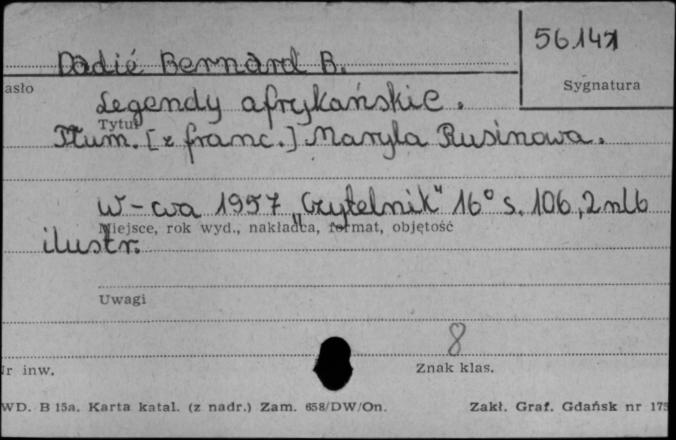 56.141
Dadié Bernard B.
asło
Sygnatura
Legendy afrykańskie.
Tytuł
Tłum. [z franc.] Maryla Rusinowa.
W-wa 1957 „Czytelnik" 16° s. 106, 2 nlb
Miejsce, rok wyd., nakładca, format, objętość
ilustr.
Uwagi
8
Nr inw.
Znak klas.
WD. B 15a. Karta katal. (z nadr.) Zam. 658/DW/On.
Zakł. Graf. Gdańsk nr 175